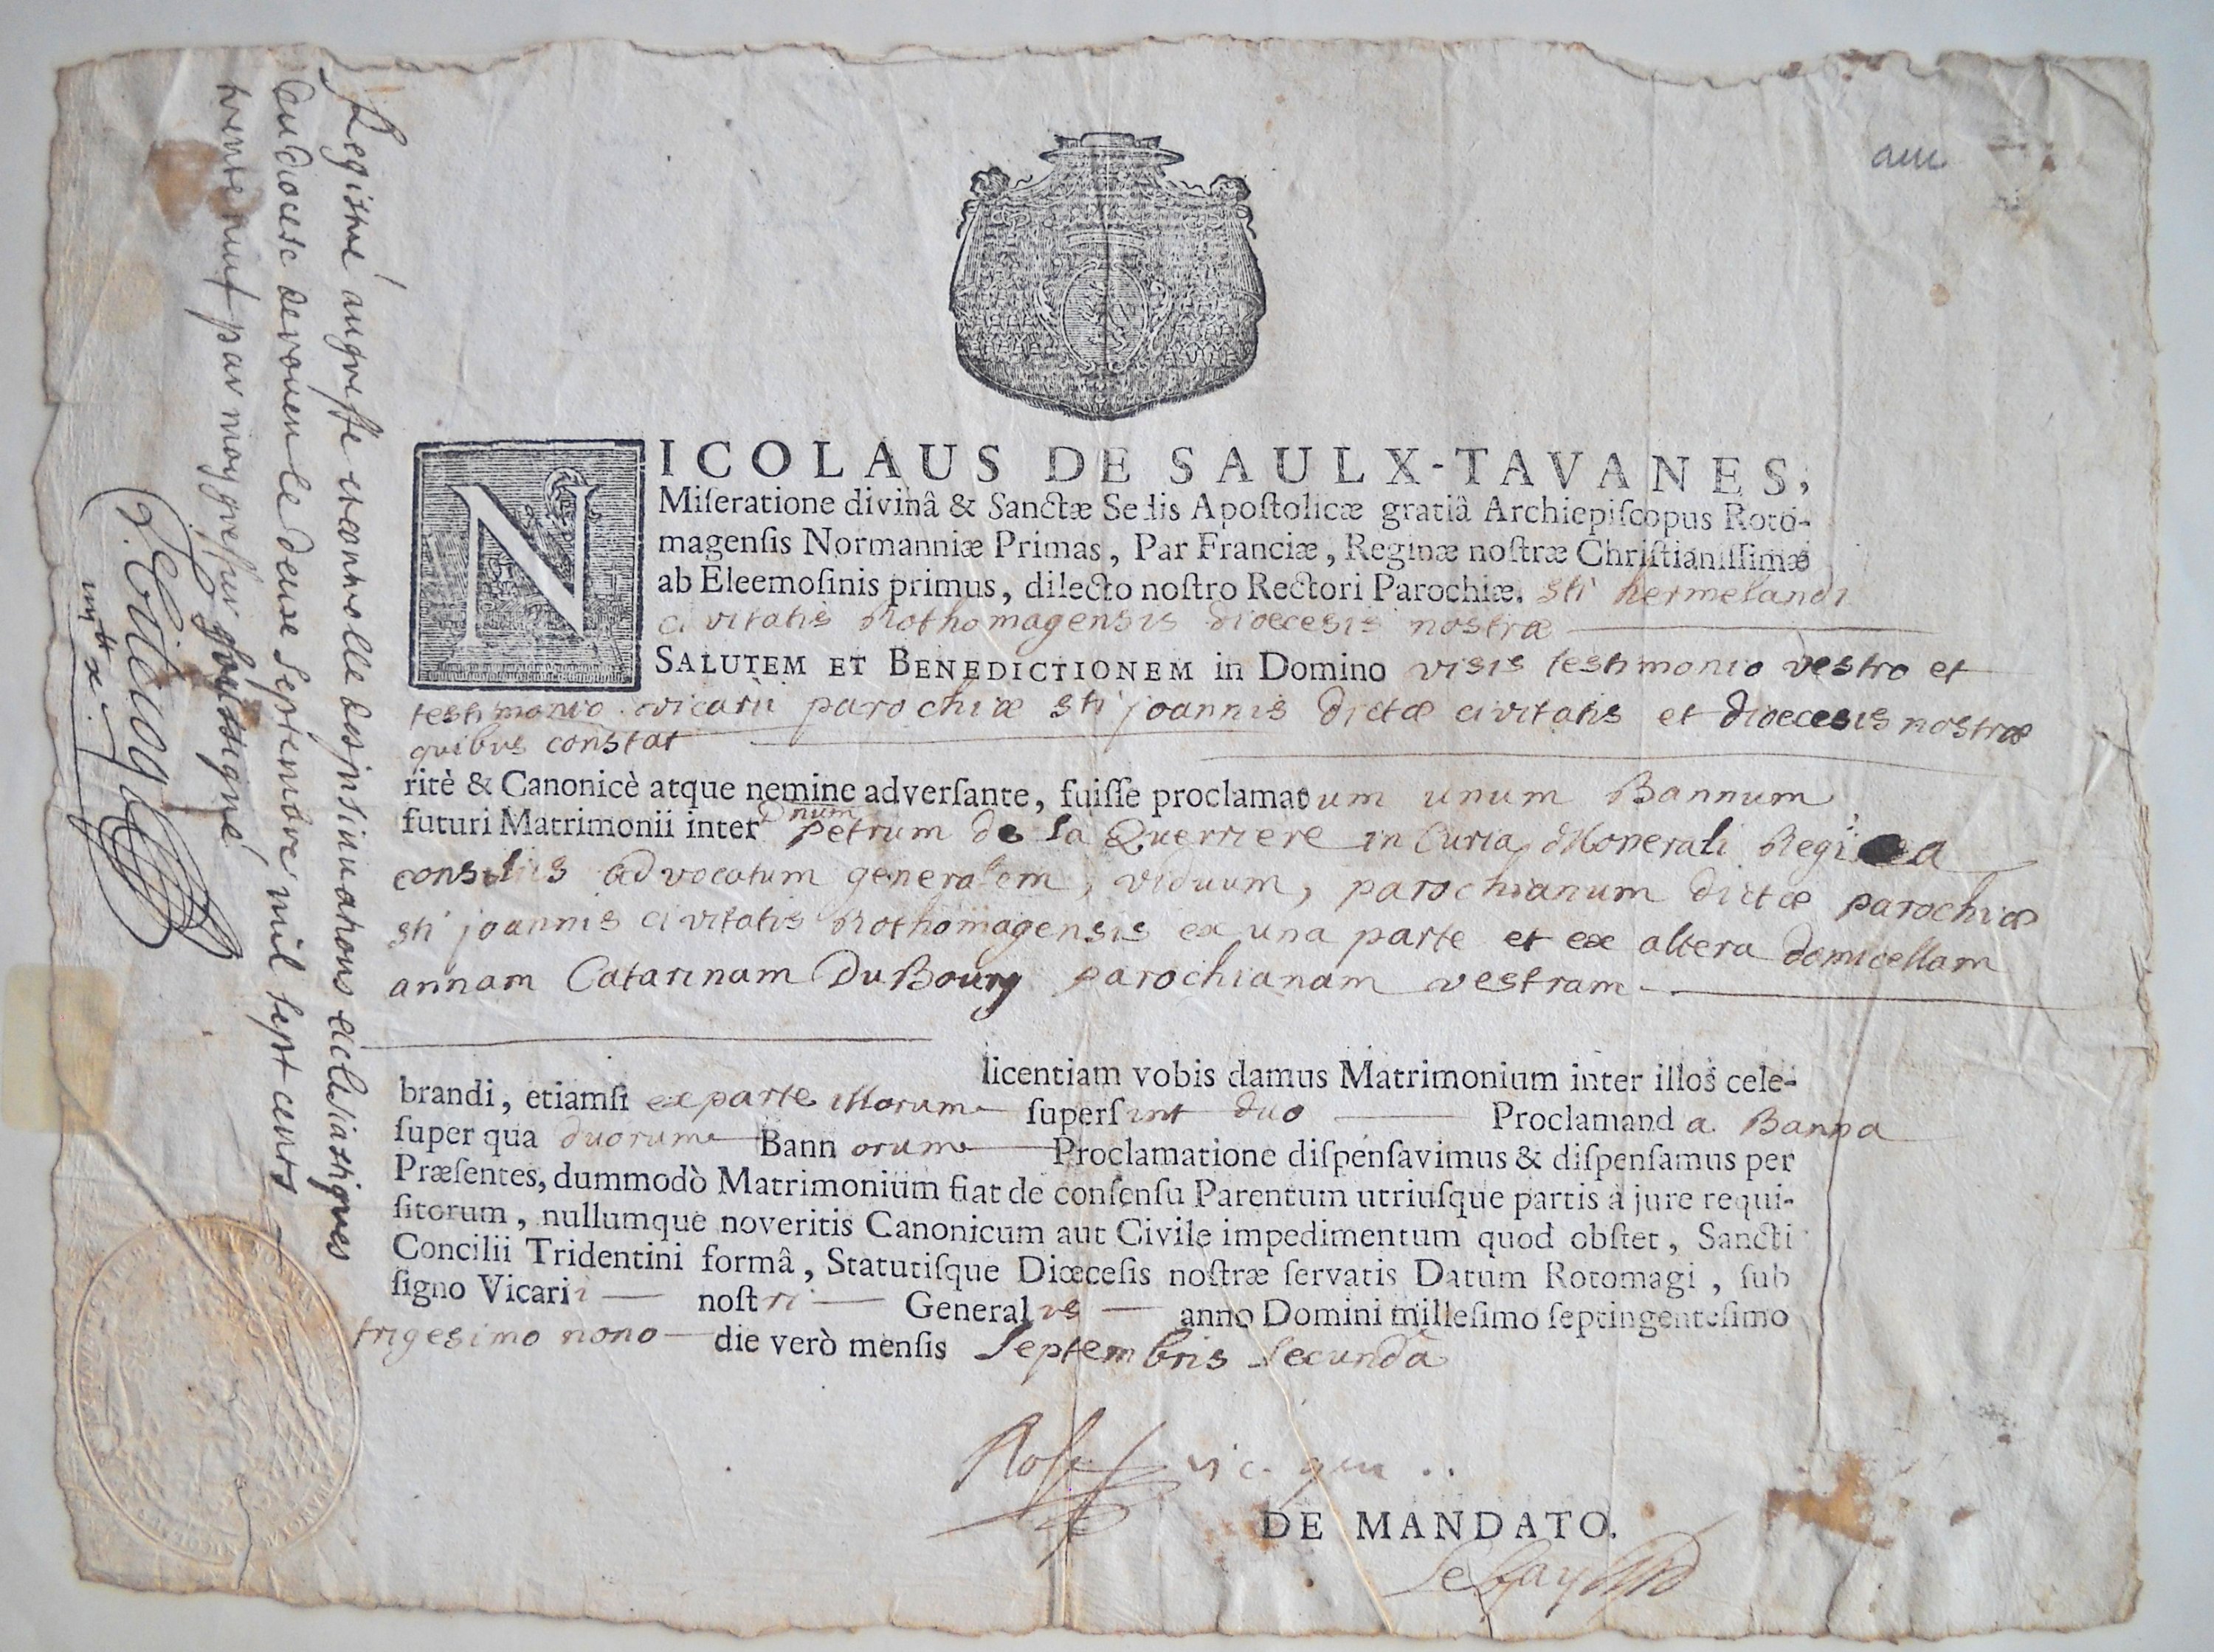 NICOLAUS DE SAULX-TAVANES,
Miſeratione divinâ & Sanctæ Sedis Apoſtolicæ gratiâ Archiepiſcopus Roto-
magenſis Normanniæ Primas, Par Franciæ, Reginæ noſtræ Chriſtianiſſimæ
ab Eleemoſinis primus, dilecto noſtro Rectori Parochiæ. Sti hermelandi
civitatis Rothomagensis dioecesis nostræ
SALUTEM ET BENEDICTIONEM in Domino visis testimonio vestro et
testimonio vicarii parochiæ sti joannis dictæ civitatis et dioecesis nostræ
quibus constat
ritè & Canonicè atque nemine adverſante, fuiſſe proclamatum unum Bannum
futuri Matrimonii inter Dnum petrum de la Querriere in Curia Monetali Regi a
consiliis advocatum generalem, viduum, parochianum dictæ parochiæ
sti joannis civitatis Rothomagensis ex una parte et ex altera domicellam
annam Catarinam DuBourg parochianam vestram
licentiam vobis damus Matrimonium inter illos cele-
brandi, etiamſi ex parte illorum ſuperſint duo Proclamanda Banna
ſuper qua duorum Bannorum Proclamatione diſpenſavimus & diſpenſamus per
Præſentes, dummodò Matrimonium fiat de conſenſu Parentum utriuſque partis à jure requi-
ſitorum, nullumque noveritis Canonicum aut Civile impedimentum quod obſtet, Sancti
Concilii Tridentini formâ, Statutiſque Diœceſis noſtræ ſervatis Datum Rotomagi, ſub
ſigno Vicarii noſtri Generalis anno Domini milleſimo ſeptingenteſimo
trigesimo nono die verò menſis Septembris Secunda
vic. gen..
DE MANDATO.
Registré au greffe et controlle des insinuations ecclesiastiques
du diocese de rouen le deuxe septembre mil sept cents
trente neuf par moy greffier soussigné